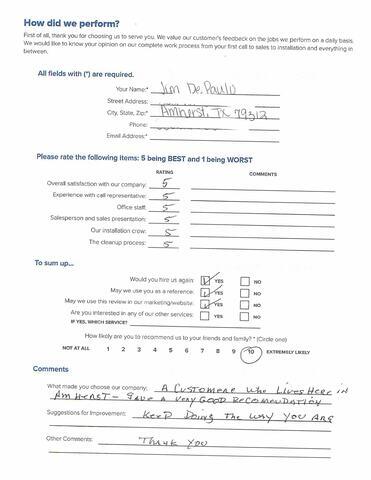 How did we perform?
First of all, thank you for choosing us to serve you. We value our customer's feedback on the jobs we perform on a daily basis.
We would like to know your opinion on our complete work process from your first call to sales to installation and everything in
between.
All fields with (*) are required.
Your Name:* Jim De Paulo
Street Address:
City, State, Zip:* Amherst, TX 79312
Phone:
Email Address:*
Please rate the following items: 5 being BEST and 1 being WORST
RATING COMMENTS
Overall satisfaction with our company: 5
Experience with call representative: 5
Office staff: 5
Salesperson and sales presentation: 5
Our installation crew: 5
The cleanup process: 5
To sum up...
Would you hire us again: ✓ YES NO
May we use you as a reference: ✓ YES NO
May we use this review in our marketing/website: ✓ YES NO
Are you interested in any of our other services: YES NO
IF YES, WHICH SERVICE?
How likely are you to recommend us to your friends and family? * (Circle one)
NOT AT ALL 1 2 3 4 5 6 7 8 9 10 EXTREMELY LIKELY
Comments
What made you choose our company: A CUSTOMERE WHO LIVES HERE IN
AMHERST - GAVE A VERY GOOD RECOMENDATION
Suggestions for Improvement: KEEP DOING THE WAY YOU ARE
Other Comments: THANK YOU